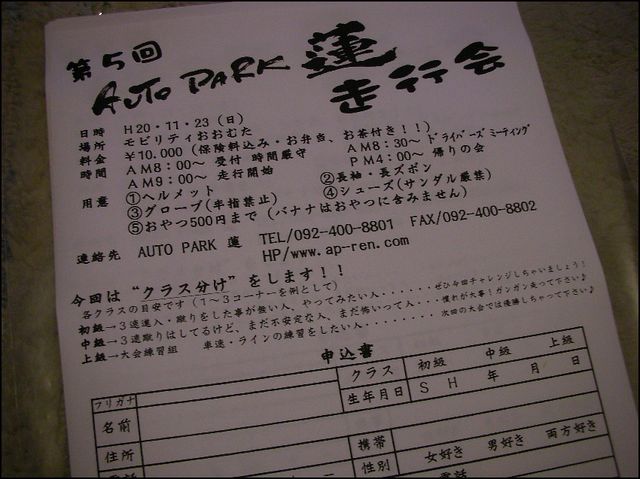 第5回
AUTO PARK 蓮 走行会
日時 H20・11・23(日)
場所 モビリティおおむた
料金 ¥10.000(保険料込み・お弁当、お茶付き!!)
時間 AM8:00～ 受付 時間厳守 AM8:30～ ドライバーズミーティング
AM9:00～ 走行開始 PM4:00～ 帰りの会
用意 ①ヘルメット ②長袖・長ズボン
③グローブ(半指禁止) ④シューズ(サンダル厳禁)
⑤おやつ500円まで(バナナはおやつに含みません)
連絡先 AUTO PARK 蓮 TEL/092-400-8801 FAX/092-400-8802
HP/www.ap-ren.com
今回は “クラス分け” をします!!
各クラスの目安です(1～3コーナーを例として)
初級→3速進入・蹴りをした事が無い人、やってみたい人・・・・・・ぜひ今回チャレンジしちゃいましょう!
中級→3速蹴りはしてるけど、まだ不安定な人、まだ怖いって人・・・・慣れが大事!ガンガン走って下さい♪
上級→大会練習組 車速・ラインの練習をしたい人・・・・・・・・次回の大会では優勝しちゃって下さい♪
申込書
フリガナ クラス 初級 中級 上級
名前 生年月日 S H 年 月 日
住所 携帯
性別 女好き 男好き 両方好き
電話